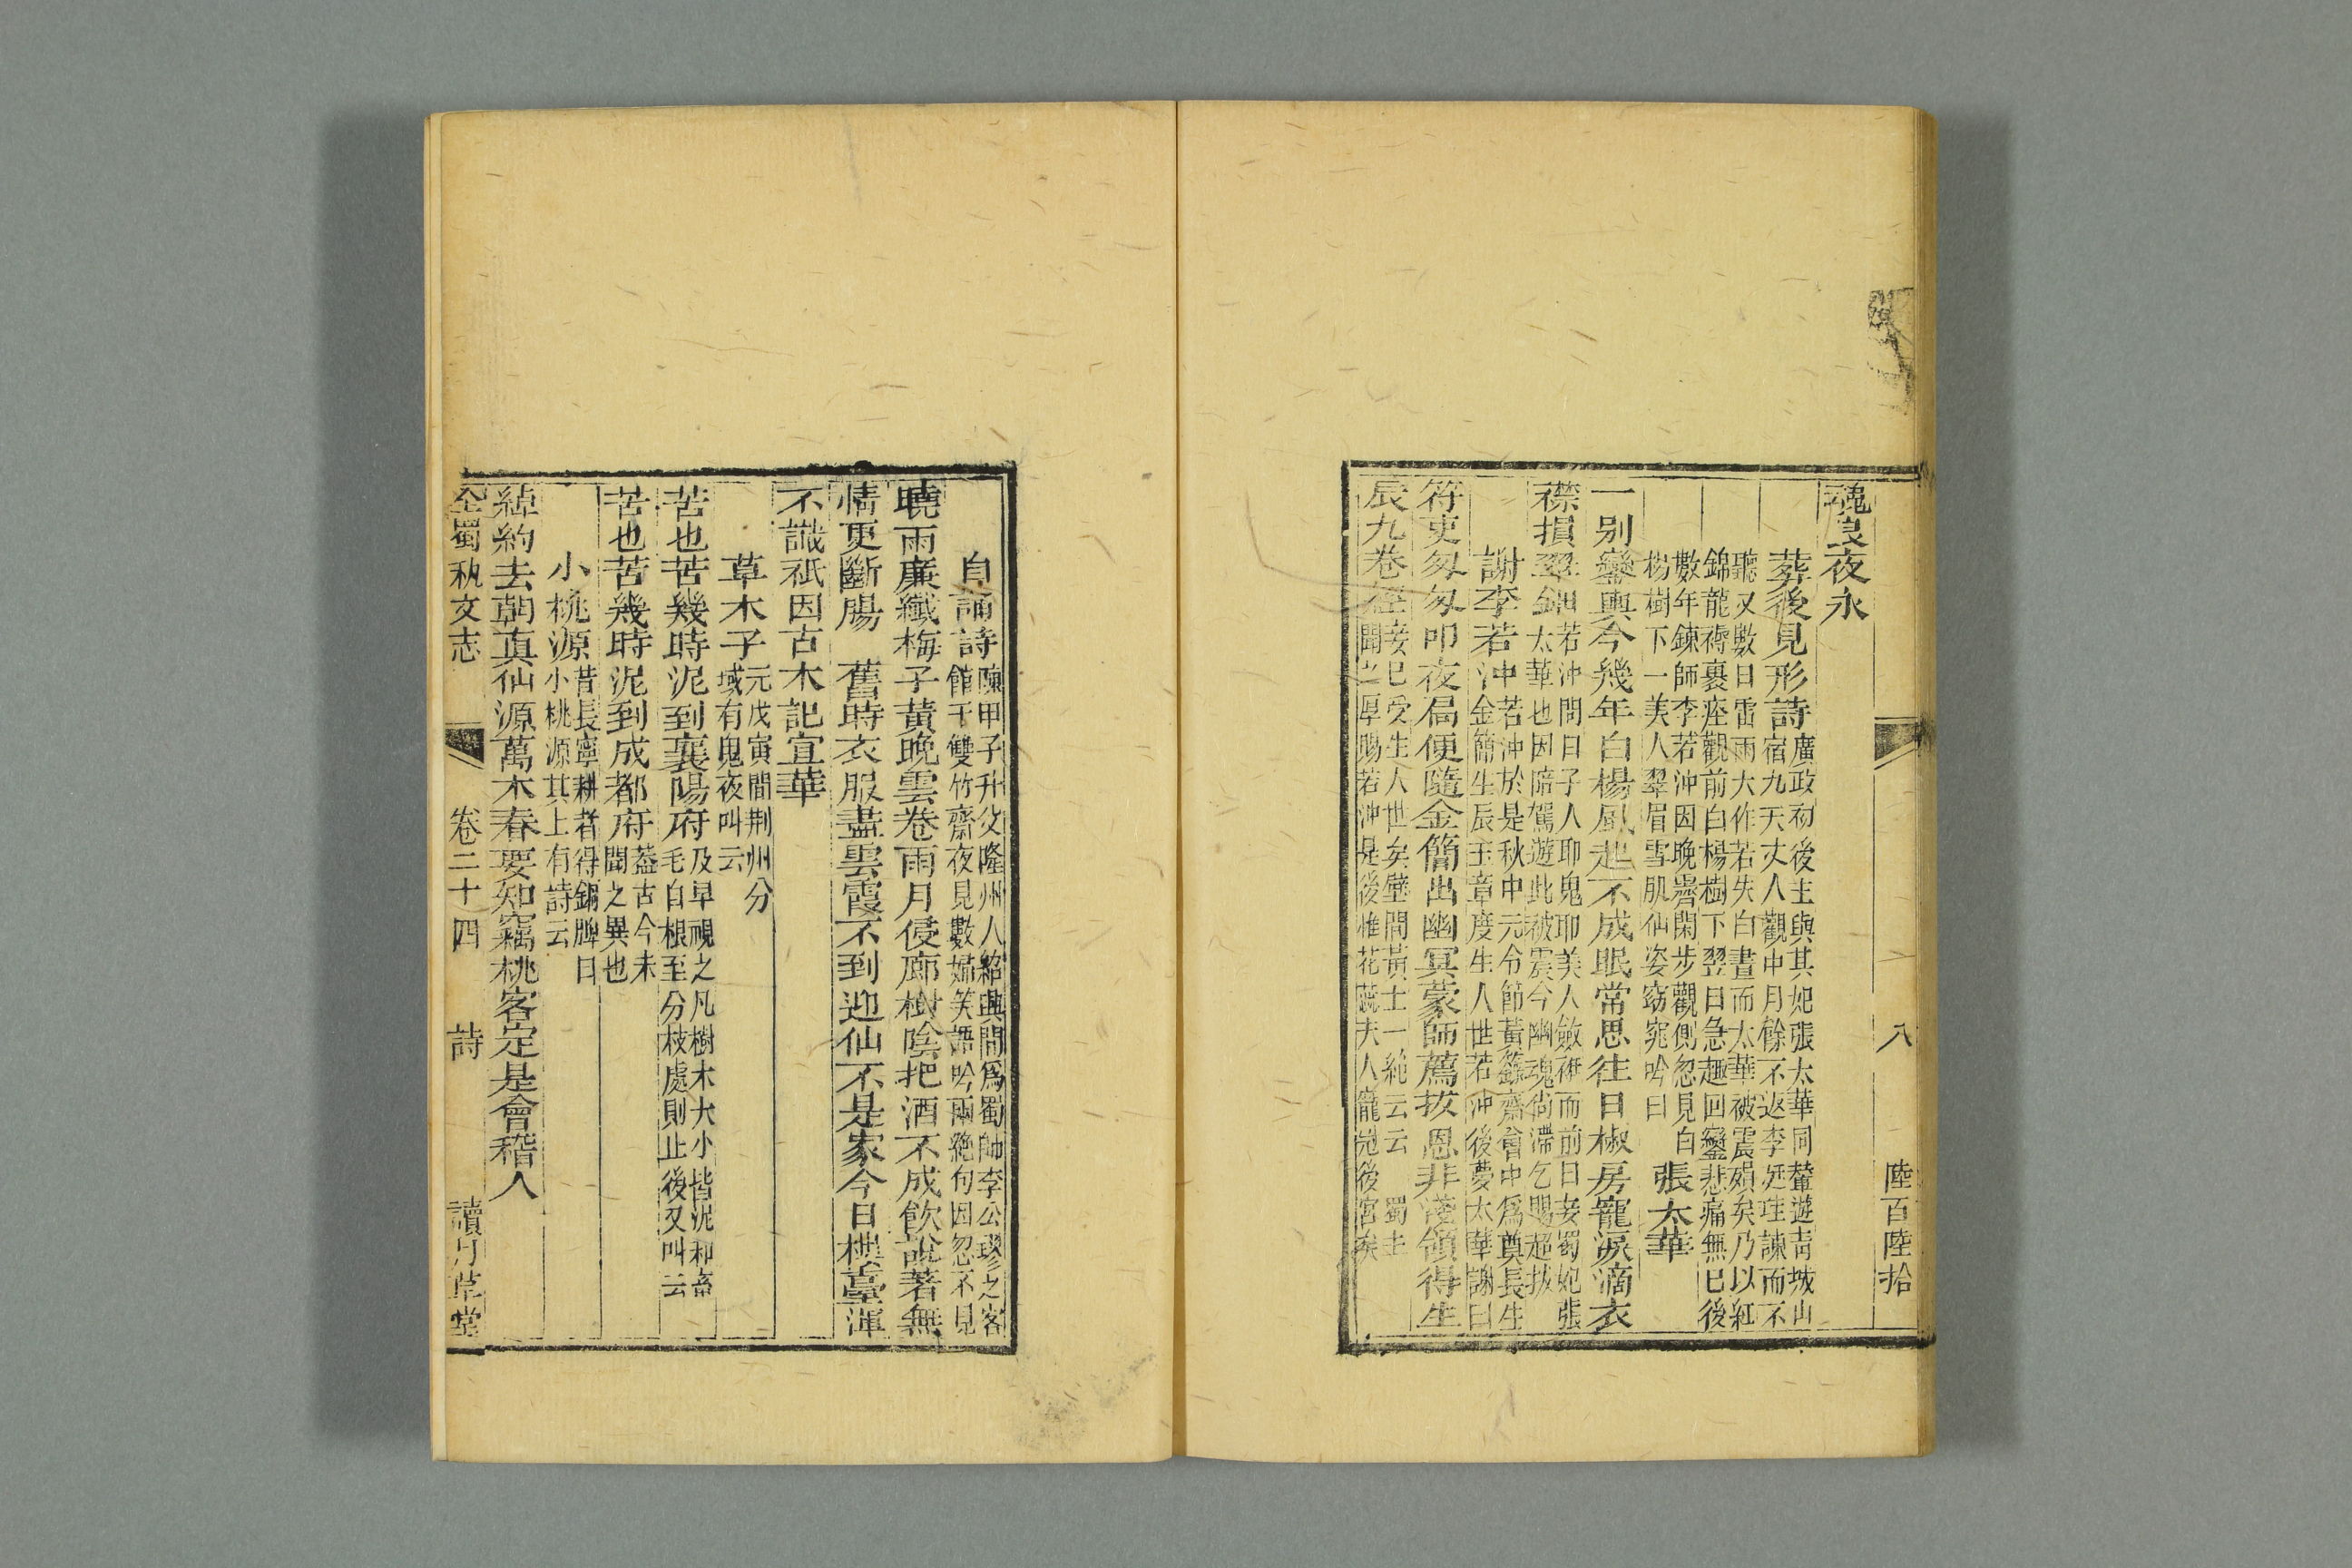 八 陸百陸拾
魂良夜永
葬後見形詩
廣政初後主與其妃張太華同輦遊青城山
宿九天丈人觀中月餘不返李廷珪諫而不
聽又數日雷雨大作若失白晝而太華被震殞矣乃以紅
錦龍褥裹瘞觀前白楊樹下翌日急趣回鑾悲痛無已後
數年鍊師李若沖因晚霽閑步觀側忽見白
楊樹下一美人翠眉雪肌仙姿窈窕吟曰
張太華
一别鑾輿今幾年白楊風起不成眠常思往日椒房寵淚滴衣
襟損翠鈿
若沖問曰子人耶鬼耶美人斂袵而前曰妾蜀妃張
太華也因陪駕遊此被震今幽魂尙滯乞賜超拔
謝李若沖
若沖於是秋中元令節黃籙齋會中爲奠長生
金簡生辰玉章度生人世若沖後夢太華謝曰
符吏匆匆叩夜扃便隨金簡出幽冥蒙師薦拔恩非淺領得生
辰九卷經
妾已受生人世矣壁間黃土一絶云云 蜀主
聞之厚賜若沖是後惟花蕊夫人寵冠後宮矣
自誦詩
陳甲子升父隆州人紹興間爲蜀帥李公璆之客
館于雙竹齋夜見數婦笑語吟兩絶句因忽不見
曉雨廉纖梅子黃晚雲卷雨月侵廊樹陰把酒不成飮說著無
情更斷腸 舊時衣服盡雲霞不到迎仙不是家今日樓臺渾
不識祇因古木記宣華
草木子
元戊寅間荆州分
域有鬼夜叫云
苦也苦幾時泥到襄陽府
及早視之凡樹木大小皆泥和畜
毛自根至分枝處則止後又叫云
苦也苦幾時泥到成都府
蓋古今未
聞之異也
小桃源
昔長寧耕者得銅牌曰
小桃源其上有詩云
綽約去朝真仙源萬木春要知竊桃客定是會稽人
全蜀秇文志 卷二十四 詩 讀月草堂